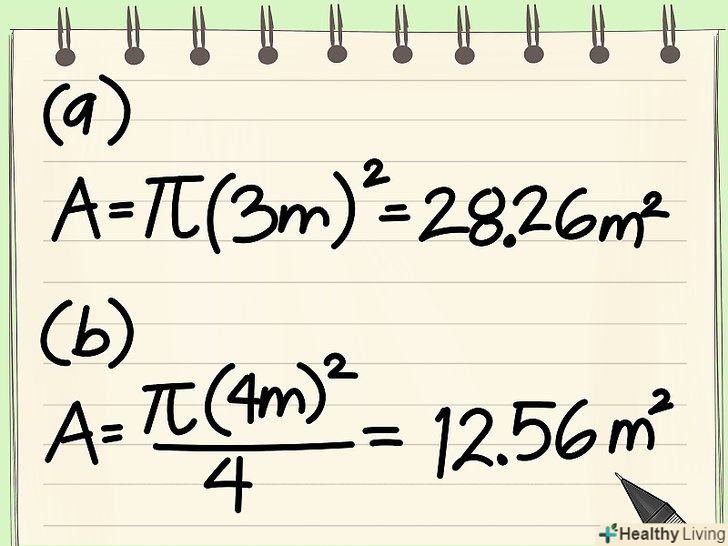 (a)
A = π(3m)² = 28.26m²
(b)
A = π(4m)²/4 = 12.56 m²
Healthy Living